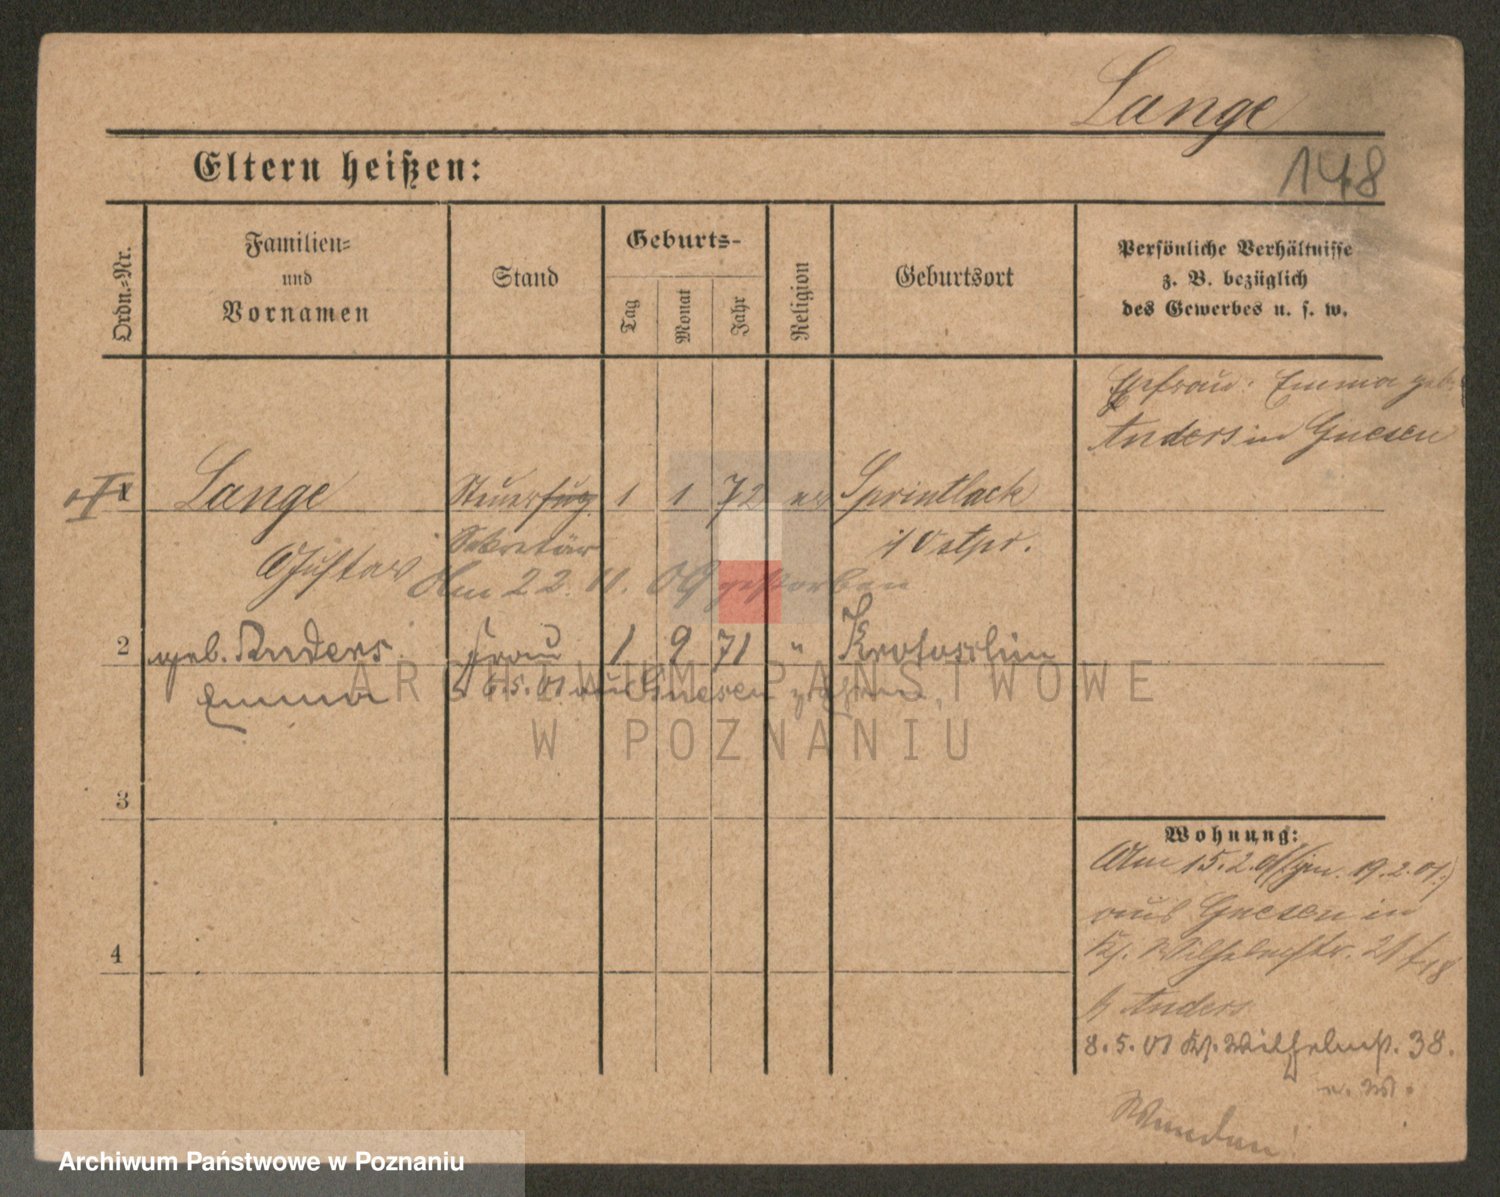 Lange
148
Eltern heißen:
Ordn.-Nr.
Familien-
und
Vornamen
Stand
Geburts-
Tag
Monat
Jahr
Religion
Geburtsort
Persönliche Verhältnisse
z. B. bezüglich
des Gewerbes u. s. w.
Ehefrau: Emma geb.
Anders in Gnesen
1 Lange Steuer 1 1 72 ev Sprintlack
Sekretär i Ostpr.
Gustav
Am 22. 11. 09 gestorben
2 geb. Anders Frau 1 9 71 " Krotoschin
Emma 6.5.01 aus Gnesen
3
4
Wohnung:
Am 15.2.01 gem. 19.2.01
aus Gnesen in
Wilhelmstr. 21
b/ Anders
8.5.01 Wilhelmst. 38.
ARCHIWUM PAŃSTWOWE
W POZNANIU
Archiwum Państwowe w Poznaniu